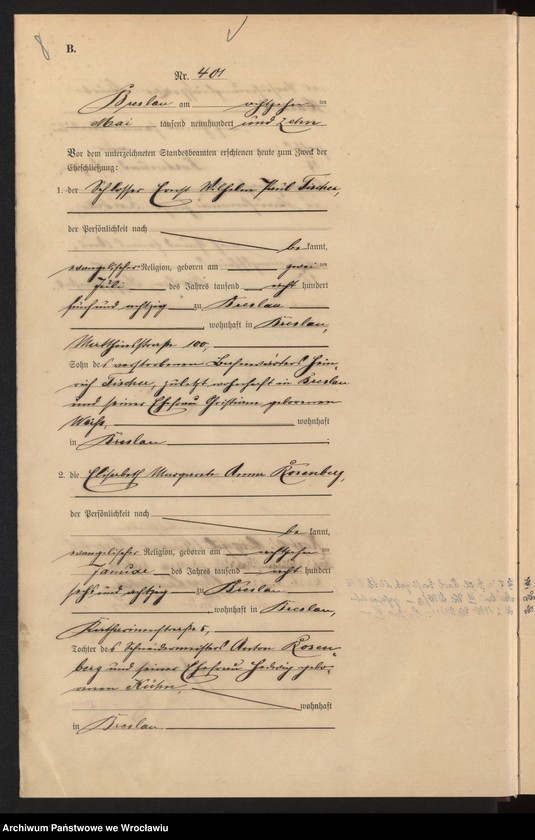 8
B.
Nr. 401
Breslau am achtzehn ten
Mai tausend neunhundert und zehn
Vor dem unterzeichneten Standesbeamten erschienen heute zum Zweck der
Eheschließung:
1. der Schlosser Ernst Wilhelm Paul Fischer,
der Persönlichkeit nach
be kannt,
evangelischer Religion, geboren am zwei ten
Juli des Jahres tausend acht hundert
fünfundachtzig zu Breslau
, wohnhaft in Breslau,
Matthiasstraße 100,
Sohn des verstorbenen Bahnwärters Hein-
rich Fischer, zuletzt wohnhaft in Breslau
und seiner Ehefrau Christiane geborenen
wohnhaft
in Breslau
2. die Elisabeth Margarete Anna Rosenberg,
der Persönlichkeit nach
be kannt,
evangelischer Religion, geboren am achtzehn ten
Januar des Jahres tausend acht hundert
sechsundachtzig zu Breslau
, wohnhaft in Breslau,
Katharinenstraße 5,
Tochter des Schneidermeisters Anton Rosen-
berg und seiner Ehefrau Hedwig gebo-
renen Kühn,
wohnhaft
in Breslau
Archiwum Państwowe we Wrocławiu